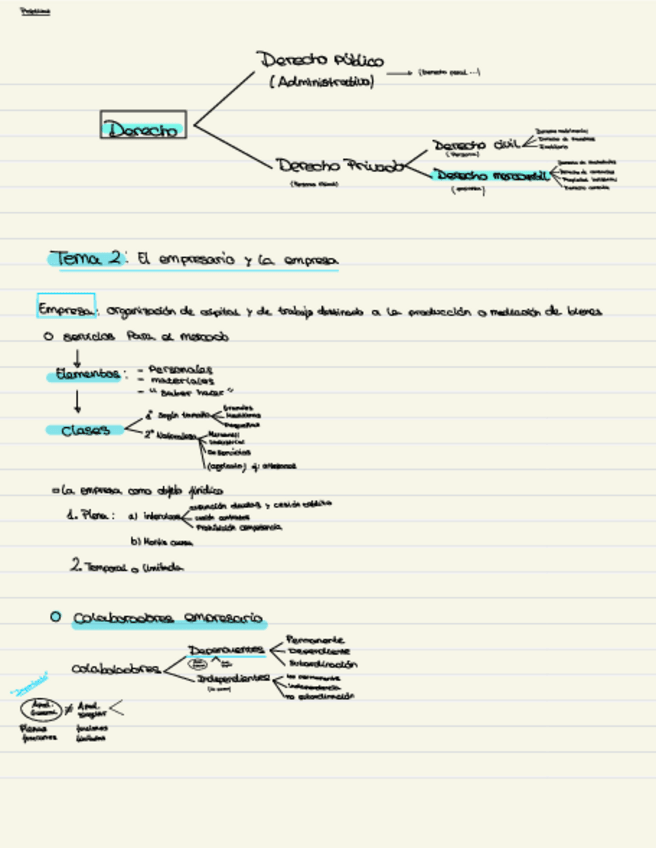 Derecho público
(Administrativo)
(Derecho penal ...)
Derecho
Derecho civil
(Personas)
Derecho Privado
Derecho mercantil
Tema 2: El empresario y la empresa
Empresa: organización de capital y de trabajo destinado a la producción o mediación de bienes
o servicios para el mercado
Elementos: - Personales
- materiales
- "saber hacer"
Clases
1º Según tamaño
Grandes
Medianas
Pequeñas
2º Naturaleza
Mercantil
Industrial
De Servicios
(agrícola) ej: artesanos
La empresa como objeto jurídico
1. Plena: a) intervivos
asunción deudas y cesión créditos
cesión contratos
Prohibición competencia
b) Mortis causa
2. Temporal o limitada
Colaboradores empresario
Colaboradores
Dependientes
Permanente
Dependiente
Subordinación
Independientes
no permanente
independencia
no subordinación
"Importante"
Apod. General ≠ Apod. Singular
Plenas funciones
funciones limitadas